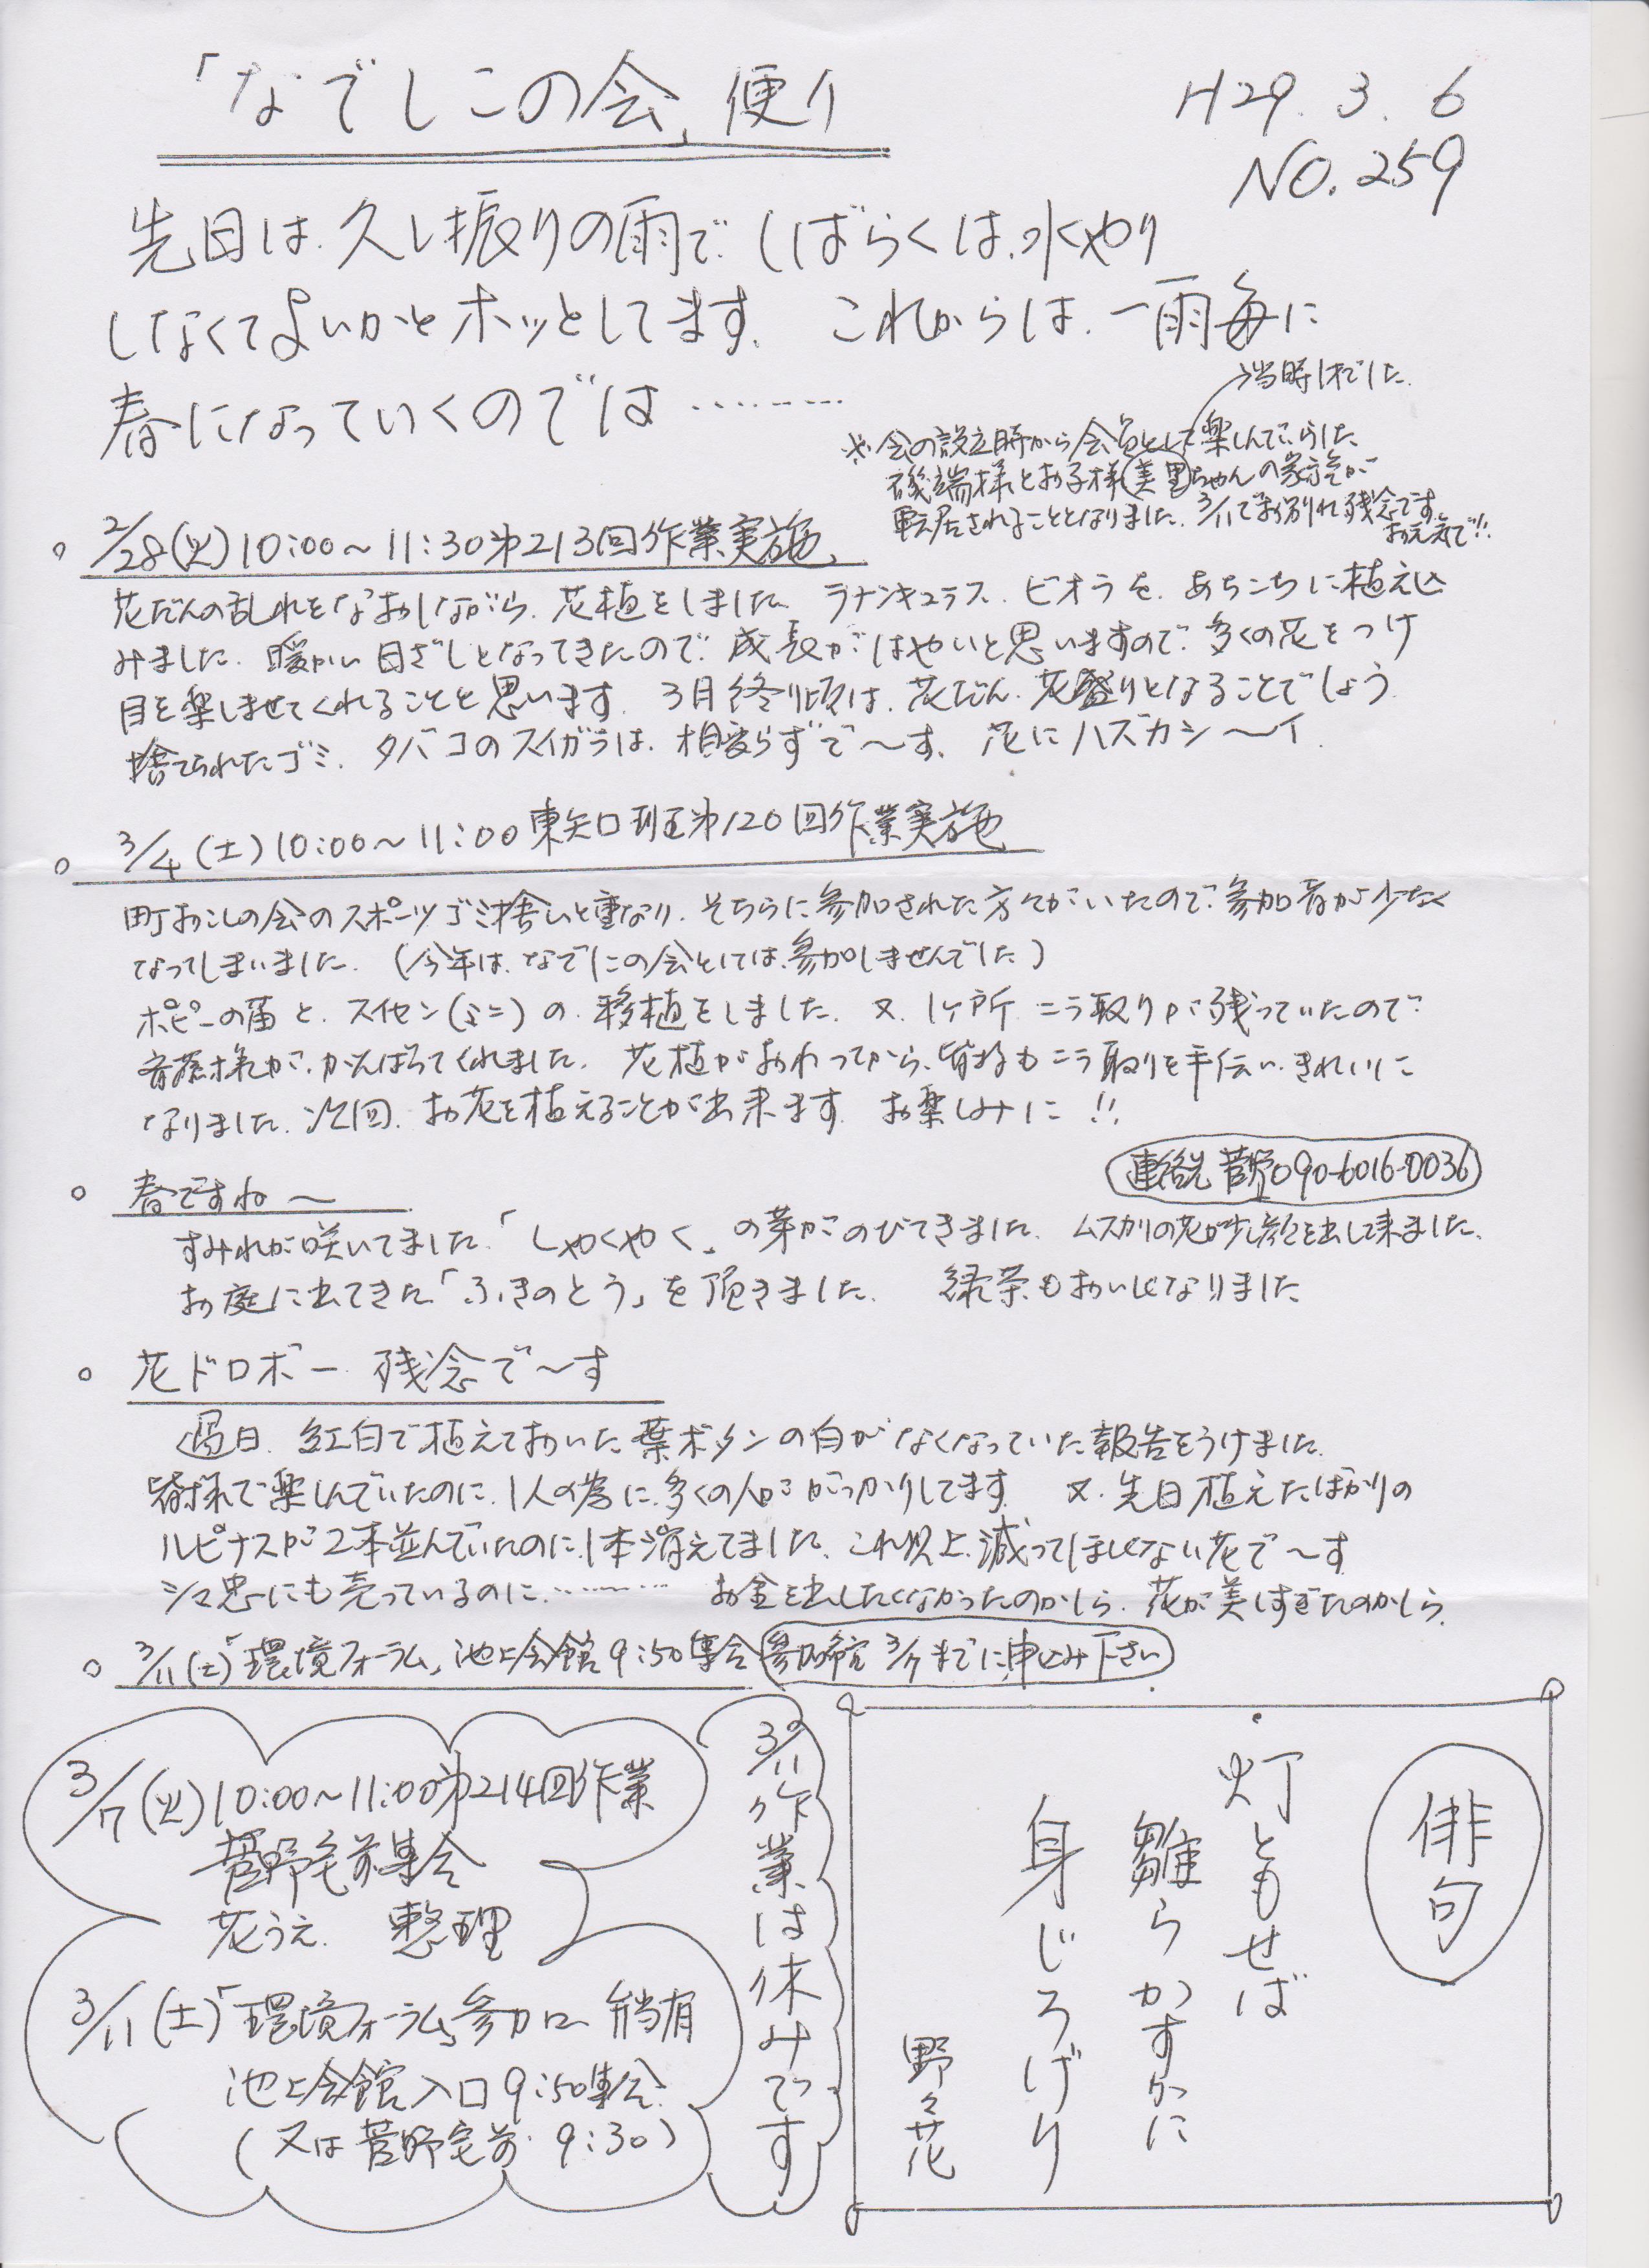 「なでしこの会」便り
H29.3.6
NO.259
先日は、久し振りの雨で、しばらくは、水やり
しなくてよいかとホッとしてます。これからは、一雨毎に
春になっていくのでは………
→当時1才でした。
※会の設立時から会員として楽しんでいらした
磯端様とお子様美里ちゃんの家族が
転居されることとなりました。3/11でお別れ残念です。
お元気で!!
○ 2/28(火)10:00～11:30第213回作業実施
花だんの乱れをなおしながら、花植をしました。ラナンキュラス、ビオラを、あちこちに植え込
みました。暖かい日ざしとなってきたので、成長がはやいと思いますので、多くの花をつけ
目を楽しませてくれることと思います。3月終り頃は、花だん、花盛りとなることでしょう。
捨てられたゴミ、タバコのスイガラは、相変らずで～す。花にハズカシ～イ。
○ 3/4(土)10:00～11:00東矢口班第120回作業実施
町おこしの会のスポーツゴミ拾いと重なり、そちらに参加された方々がいたので、参加者が少なく
なってしまいました。(今年は、なでしこの会としては、参加しませんでした)
ポピーの苗と、スイセン(ミニ)の移植をしました。又、1ヶ所ニラ取りが残っていたので
斉藤様が、がんばってくれました。花植がおわってから、皆様もニラ取りを手伝い、きれいに
なりました。次回、お花を植えることが出来ます。お楽しみに!!
連絡先 菅野090-6016-0036
○ 春ですね～
すみれが咲いてました。「しゃくやく」の芽がのびてきました。ムスカリの花が少し顔を出して来ました。
お庭に出てきた「ふきのとう」を頂きました。緑茶もおいしくなりました
○ 花ドロボー 残念で～す
過日、紅白で植えておいた葉ボタンの白がなくなっていた報告をうけました。
皆様で楽しんでいたのに、1人の為に、多くの人ががっかりしてます。又、先日植えたばかりの
ルピナスが2本並んでいたのに、1本消えてました。これ以上、減ってほしくない花で～す
シマ忠にも売っているのに………お金を出したくなかったのかしら、花が美しすぎたのかしら。
○ 3/11(土)「環境フォーラム」池上会館9:50集合 参加希望 3/7までに申込み下さい
3/7(火)10:00～11:00第214回作業
菅野宅前集合
花うえ、整理
3/11(土)「環境フォーラム」参加 弁当有
池上会館入口9:50集合
(又は菅野宅前 9:30)
3/11作業は休みです
俳句
灯ともせば
雛らかすかに
身じろげり
野々花